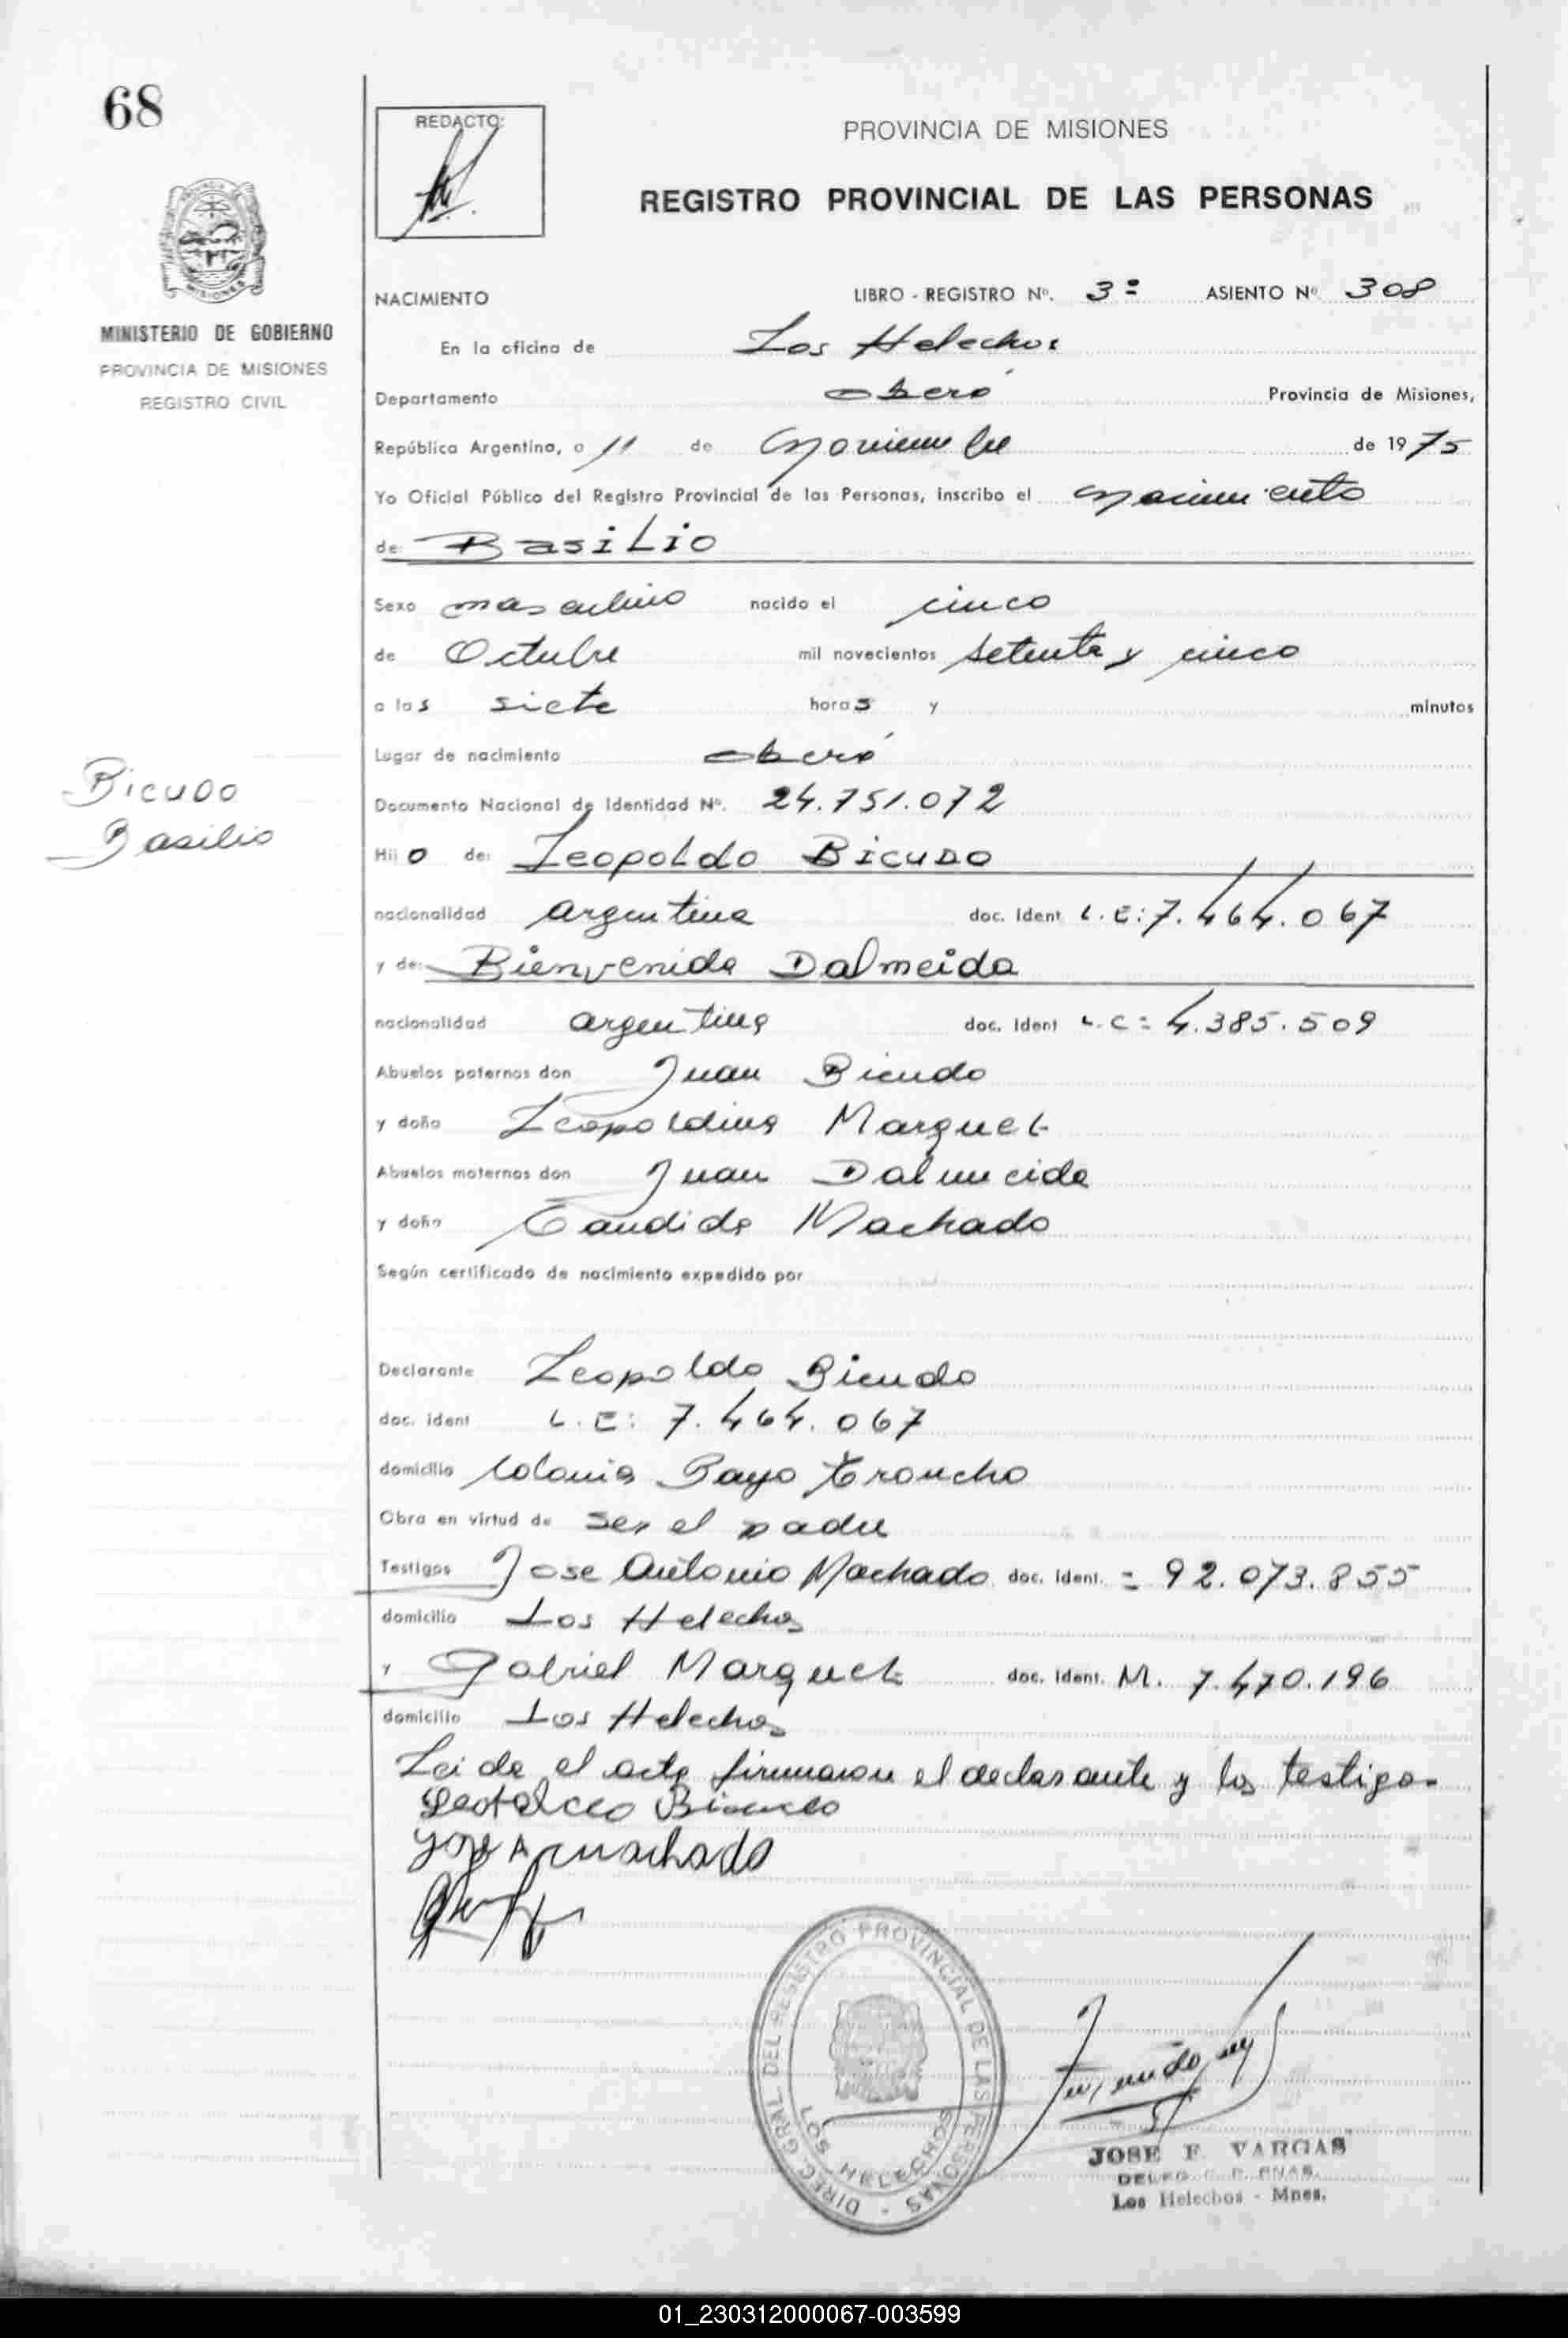 68
REDACTO:
PROVINCIA DE MISIONES
REGISTRO PROVINCIAL DE LAS PERSONAS
MINISTERIO DE GOBIERNO
PROVINCIA DE MISIONES
REGISTRO CIVIL
NACIMIENTO LIBRO - REGISTRO Nº. 3º ASIENTO Nº 308
En la oficina de Los Helechos
Departamento oberá Provincia de Misiones,
República Argentina, a 11 de Noviembre de 1975
Yo Oficial Público del Registro Provincial de las Personas, inscribo el Nacimiento
de: Basilio
Sexo masculino nacido el cinco
de Octubre mil novecientos setenta y cinco
a las siete horas y minutos
Lugar de nacimiento oberá
Bicudo
Basilio
Documento Nacional de Identidad Nº. 24.751.072
Hijo de: Leopoldo Bicudo
nacionalidad argentina doc. ident L.E: 7.464.067
y de: Bienvenida Dalmeida
nacionalidad argentina doc. ident L.C= 4.385.509
Abuelos paternos don Juan Bicudo
y doña Leopoldina Marquet
Abuelos maternos don Juan Dalmeida
y doña Candida Machado
Según certificado de nacimiento expedido por
Declarante Leopoldo Bicudo
doc. ident L.E: 7.464.067
domicilio Colonia Payo Troncho
Obra en virtud de ser el padre
Testigos Jose Antonio Machado doc. ident. = 92.073.855
domicilio Los Helechos
y Gabriel Marquet doc. ident. M. 7.470.196
domicilio Los Helechos
Leida el acta firmaron el declarante y los testigos
Bicudo
Jose A machado
DIREC. GRAL. DEL REGISTRO PROVINCIAL DE LAS PERSONAS -
LOS HELECHOS
JOSE F. VARGAS
Los Helechos - Mnes.
01_230312000067-003599